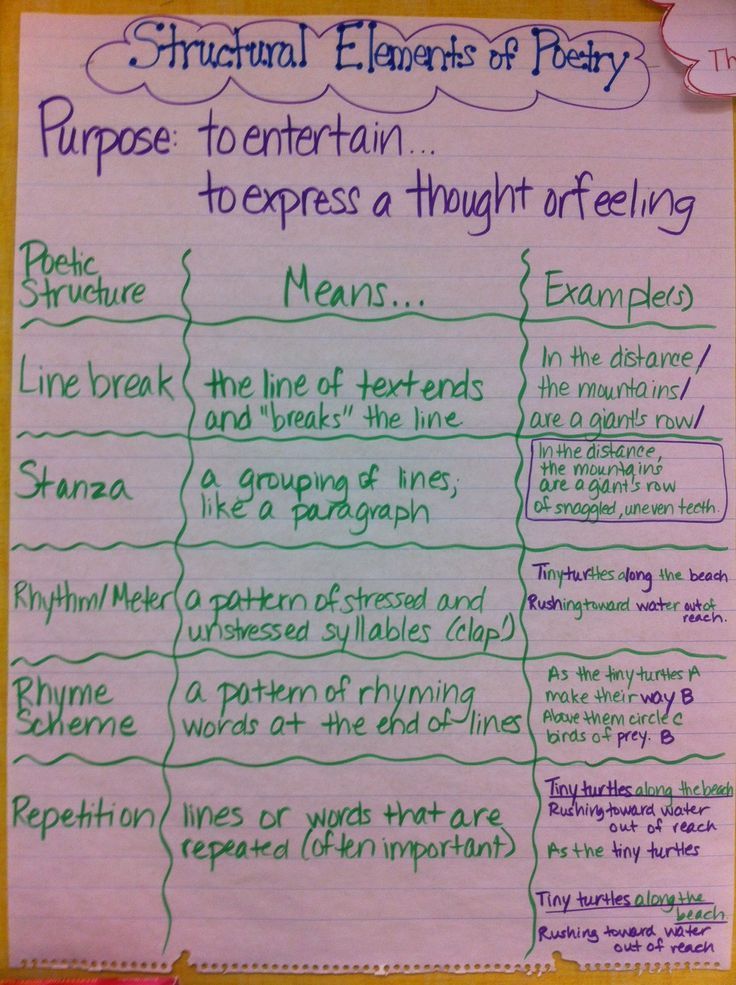 Structural Elements of Poetry
Th
Purpose: to entertain...
to express a thought or feeling
Poetic
Structure
Means...
Example(s)
Line break
the line of text ends
and "breaks" the line.
In the distance,/
the mountains/
are a giant's row/
Stanza
a grouping of lines,
like a paragraph
In the distance,
the mountains
are a giant's row
of snaggled, uneven teeth.
Rhythm/Meter
a pattern of stressed and
unstressed syllables (clap!)
Tiny turtles along the beach
Rushing toward water out of
reach.
Rhyme
Scheme
a pattern of rhyming
words at the end of lines
As the tiny turtles A
make their way B
Above them circle C
birds of prey. B
Repetition
lines or words that are
repeated (often important)
Tiny turtles along the beach
Rushing toward water
out of reach
As the tiny turtles
Tiny turtles along the
beach
Rushing toward water
out of reach